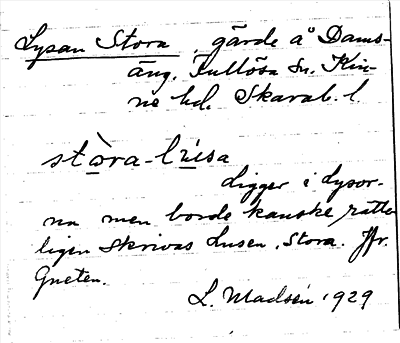 Lysan Stora, gärde å Dams-
äng. Fullösa sn. Kin-
ne hd. Skarab. l.
stòra-lúsa
Ligger i Lysor-
na men borde kanske rätte
ligen skrivas Lusen, Stora. Jfr.
Gneten.
L. Madsén 1929